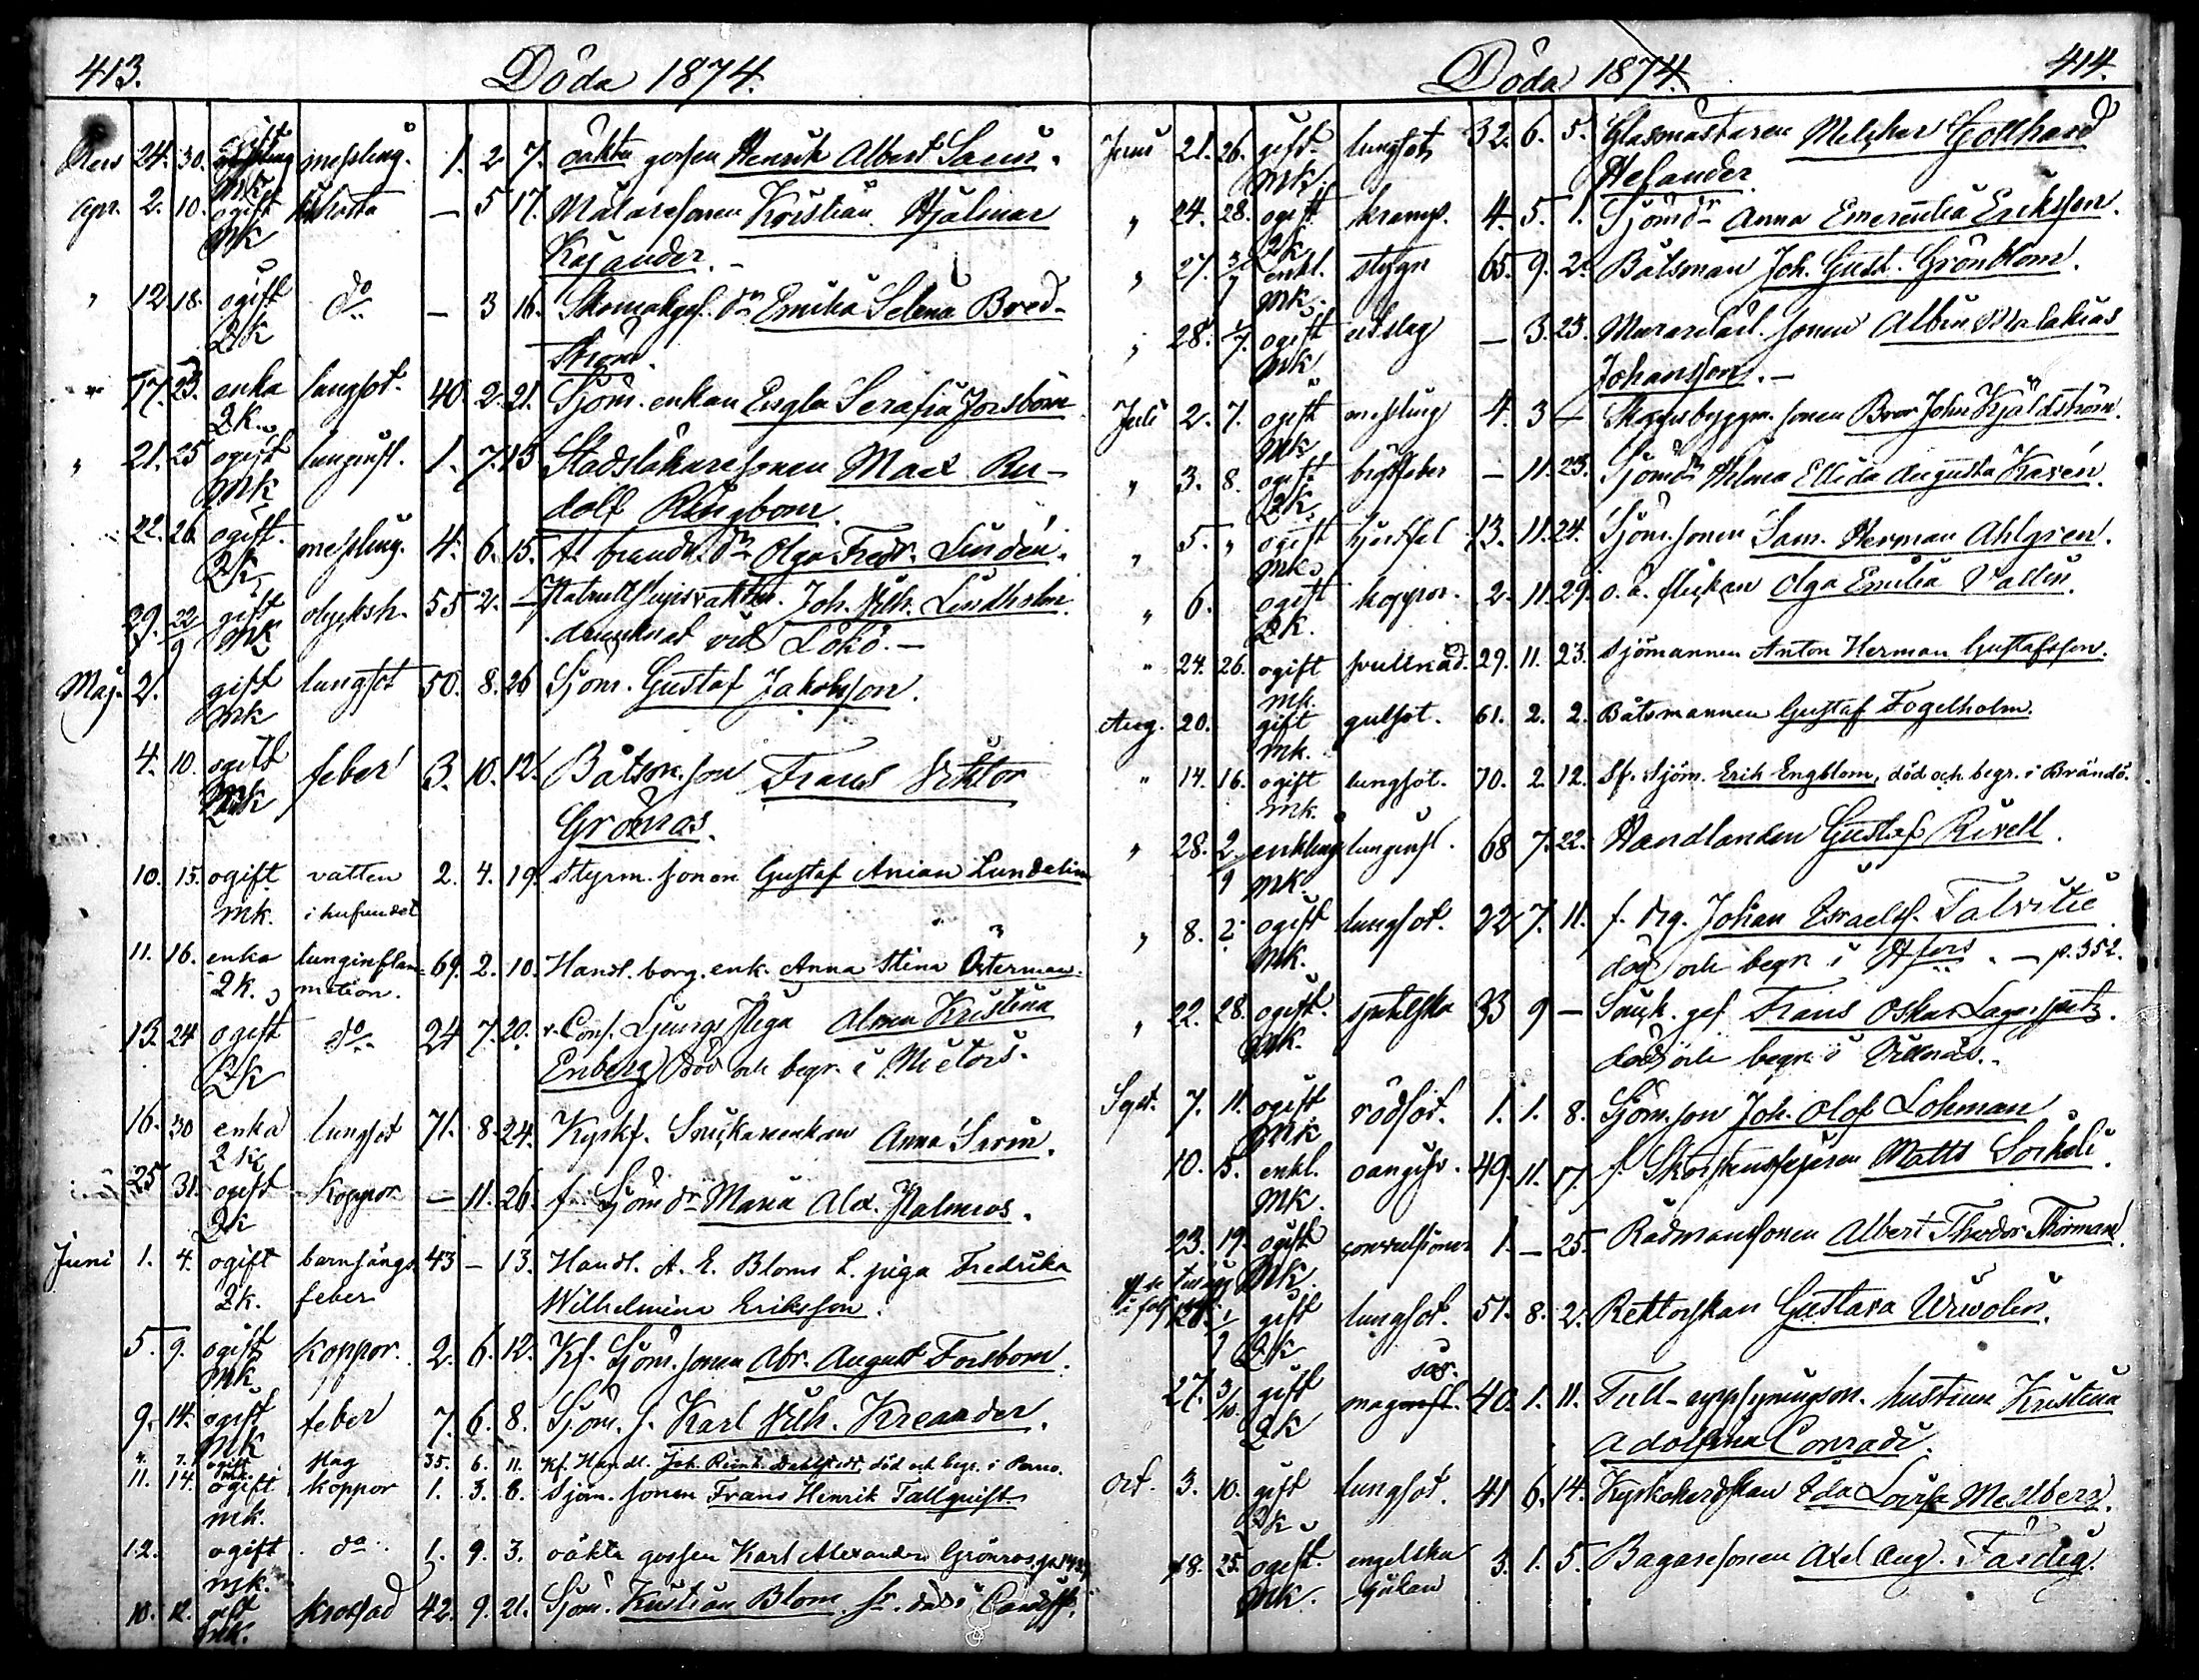 413.
Döda 1874.
24. 30. messling. 1. 2 7. oäkta gossen Henrik Albert
Apr. 2. 10. ogift — 5 17. Målaresonen Kristian Hjalmar
mk Kajander. –
" 12. 18. ogift do — 3 16. Emilia Selena Bred-
2k ström.
" 17. 23. enka lungsot. 40. 2. 21. Sjöm. enkan Engla Serafia
2k.
" 21. 25 ogift lunginfl. 1. 7. 13 Stadsläkaresonen Max Ru-
mk dolf Ringbom.
22. 26. ogift. messling. 4. 6. 15. Olga Fredr. Lindén.
2k
29. gift olycksh. 55 2. – Joh. Vilh. Lindholm
mk drunknad vid Lökö. –
Maj. 2. gift lungsot 50. 8. 26 Sjöm. Gustaf Jakobsson.
mk
4. 10. ogift feber 3. 10. 12. Båtsm. son Frans Viktor
Grönros.
10. 15. ogift vatten 2. 4. 19. Styrm. sonen Gustaf Anian Lundelin
mk. i hufvudet
11. 16. enka lunginflam- 69. 2. 10. Handl. borg. enk. Anna Stina Österman.
2k. mation.
13. 24 ogift do 24 7. 20. Ljungs piga Alma Kristina
2k Enberg död och begr. i
16. 30 enka lungsot 71. 8. 24. Kyrkf. Snickareenkan Anna
2k
25 31. ogift koppor — 11. 26. f. Sjöm dr Maria Alex. Palmros.
2k
Juni 1. 4. ogift barnsängs 43 – 13. Handl. A. E. Bloms L. piga Fredrika
2k. feber Wilhelmina Eriksson.
5. 9. ogift koppor. 2. 6. 12. Kf. Sjöm. sonen Abr. August Forsbom.
mk
9. 14. ogift feber 7. 6. 8. Sjöm. s. Karl Vilh. Kreander.
mk
" 7. ogift slag 35. 6. 11. Kf. Handl. Joh. Reinh. Dahlstedt, död och begr. i
mk.
11. 14. ogift koppor 1. 3. 8. Sjöm. sonen Frans Henrik Tallquist
mk.
12. ogift do 1. 9. 3. oäkta gossen Karl Alexander Grönros
mk.
10. 12. gift krossad 42. 9. 21. Sjöm. Kristian Blom död i Cardiff.
mk.
Döda 1874.
414.
Juni 21. 26. gift lungsot 32. 6. 5. Glasmästaren Melchar Gotthard
mk. Helander.
" 24. 28. ogift kramp. 4. 5. 1. Sjöm dr Anna Emerentia Eriksson.
2k
" 27. 3/7 enkl. stygn 65. 9. 2. Båtsman Joh. Gust. Grönblom.
mk.
" 28. 1/7. ogift utslag — 3. 23. sonen Albin Malakias
mk Johansson. –
Juli 2. 7. ogift messling 4. 3 – Skeppsbyggm. sonen Bror John Kjäldström.
mk
" 3. 8. ogift bröstfeber — 11. 23. Sjöm dr Hilma Ellida Augusta Karén.
2k
" 5. " ogift 13. 11. 24. Sjöm. sonen Sam. Herman Ahlgren.
mk
" 6. ogift koppor. 2. 11. 29. o. ä. flickan Olga Emilia Vallin.
2k.
" 24. 26. ogift svullnad. 29. 11. 23. Sjömannen Anton Herman Gustafsson.
mk.
Aug. 20. gift gulsot. 61. 2. 2. Båtsmannen Gustaf Fogelholm.
mk.
" 14. 16. ogift lungsot. 70. 2 12. Sf. sjöm. Erik Engblom, död och begr. i Brändö.
mk.
" 28. 2/9 enkling lunginfl. 68 7. 22. Handlanden Gustaf Rivell.
mk.
" 8. ogift lungsot. 22 7. 11. f. drg. Johan Israelsf. Talvitie
mk. död och begr. i Hfors. – p. 352.
" 22. 28. ogift. spetelska 33 9 – Snick. ges. Frans Oskar
mk. död och begr. i
Sept. 7. 11. ogift rödsot. 1. 1. 8. Sjöm. son Joh. Olof Lohman
mk
10. 15. enkl. 49. 11. 17. f. Skorstensfejaren Matts
mk.
23. 19. ogift convulsioner 1. – 25. Rådmansonen Albert Theodor Thorman.
mk.
28. gift lungsot. 51. 8. 2. Rektorskan Gustava
2k
27. 3/10 gift mag sår. 40. 1. 11. Tull-uppsyningsm. hustrun Kristina
2k Adolfina Conradi.
Oct. 3. 10. gift lungsot. 41 6. 14. Kyrkoherdskan Ida Lovisa Mellberg.
2k
18. 25. ogift. engelska 3. 1. 5. Bagaresonen Axel Aug. Färdig.
mk. sjukan